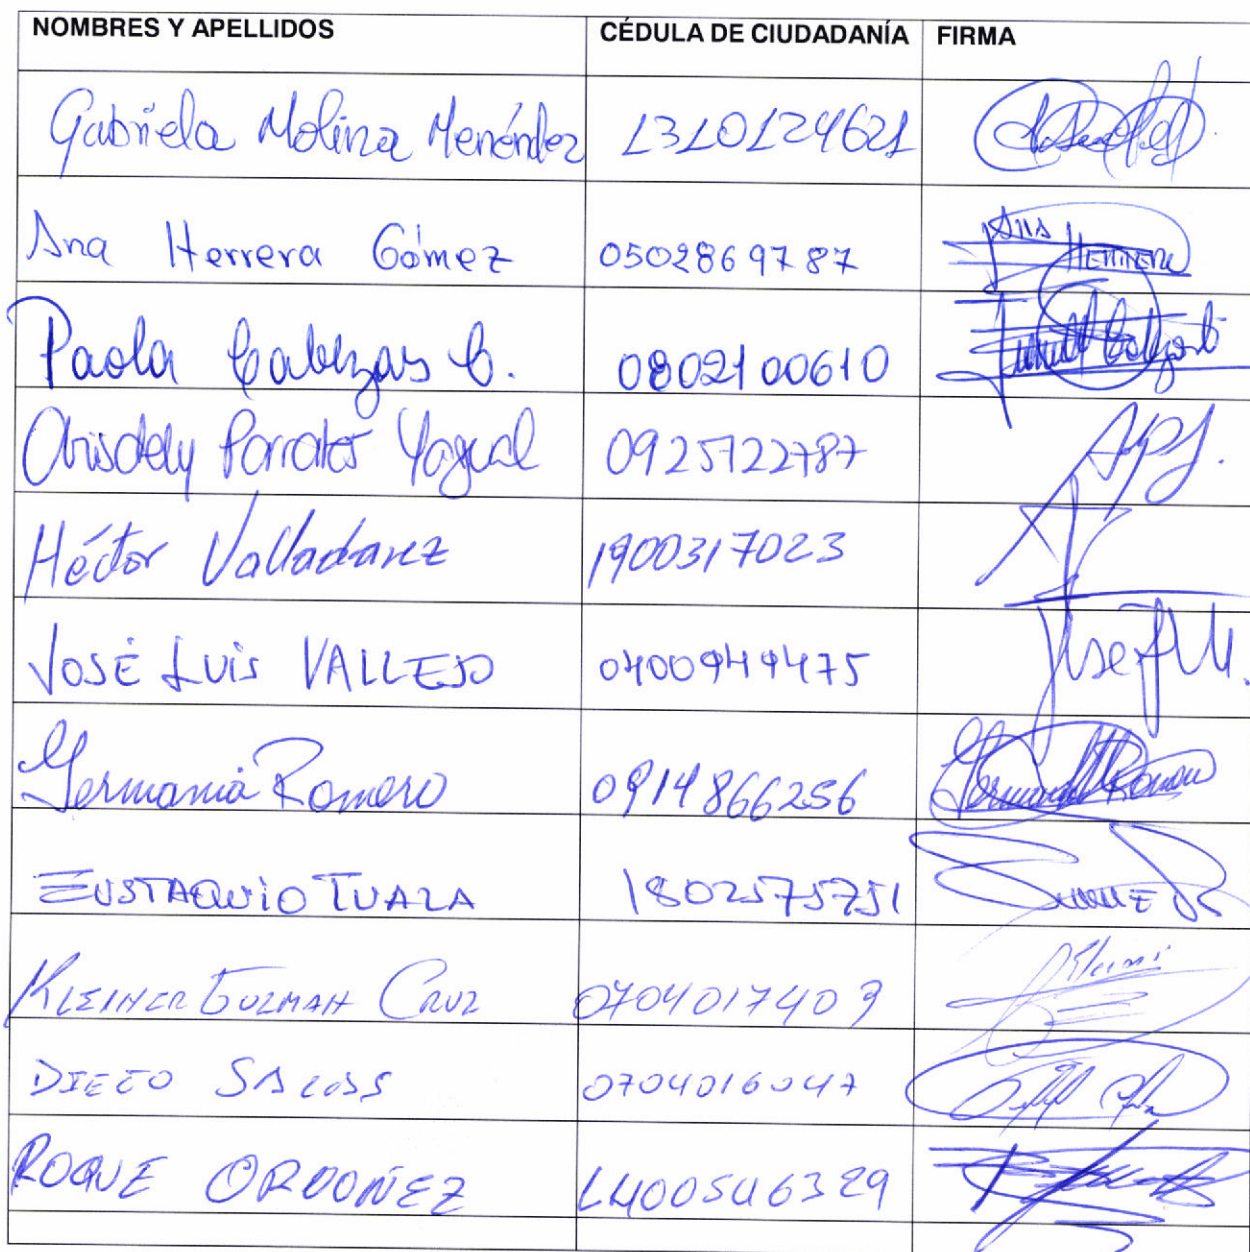 NOMBRES Y APELLIDOS CÉDULA DE CIUDADANÍA FIRMA
Gabriela Molina Menéndez 1310124621
Ana Herrera Gómez 0502869787 Ana Herrera
Paola Cabezas C. 0802100610
Parrales Yagual 0925722787 APY.
Héctor Valladarez 1900317023
JOSÉ LUIS VALLEJO 0400949475
Germania Romero 0914866256
EUSTAQUIO TUALA 1802575751
KLEINER GUZMAN CRUZ 0704017409
DIEGO SALAS 0704016047
ROQUE ORDOÑEZ 1400546329